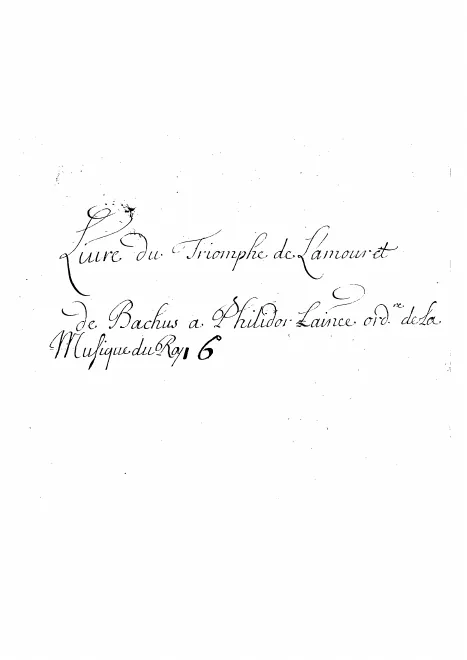 Liure du Triomphe de Lamour et
de Bachus a Philidor Lainée ord.re de La
Musique du Roy 6